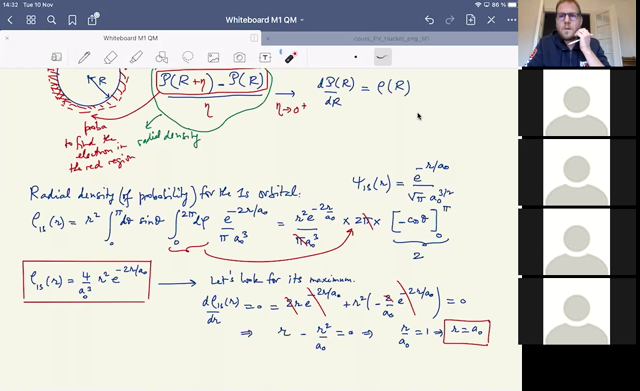 14:32 Tue 10 Nov
86 %
Whiteboard M1 QM
Whiteboard M1 QM
R
P(R+η) − P(R)
η
η→0⁺
dP(R)/dR = ρ(R)
proba
to find the
electron in
the red region
radial density
Radial density (of probability) for the 1s orbital:
Ψ₁ₛ(r) = e^{-r/a₀} / (√π a₀^{3/2})
ρ₁ₛ(r) = r² ∫₀^π dθ sinθ ∫₀^{2π} dφ e^{-2r/a₀} / (π a₀³) = r² e^{-2r/a₀} / (π a₀³) × 2π × [−cosθ]₀^π
2
ρ₁ₛ(r) = 4/a₀³ r² e^{-2r/a₀} → Let's look for its maximum.
dρ₁ₛ(r)/dr = 0 = 2r e^{-2r/a₀} + r² (−2/a₀ e^{-2r/a₀}) = 0
⇒ r − r²/a₀ = 0 ⇒ r/a₀ = 1 ⇒ r = a₀